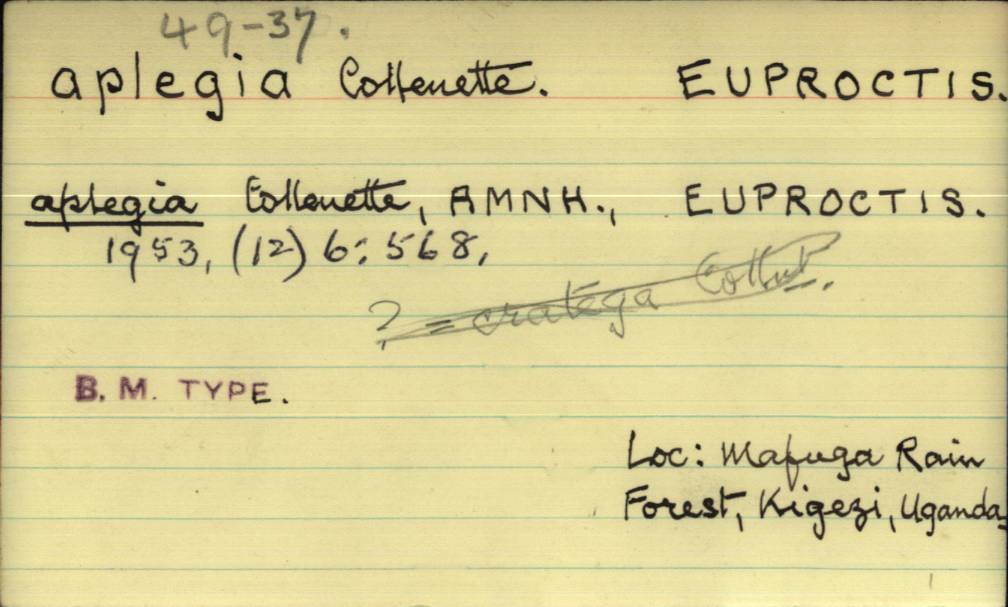 49-37.
aplegia Collenette. EUPROCTIS.
aplegia Collenette, AMNH., EUPROCTIS.
1953, (12) 6: 568,
? = cratega Collnt.
B. M. TYPE.
Loc: Mafuga Rain
Forest, Kigezi, Uganda